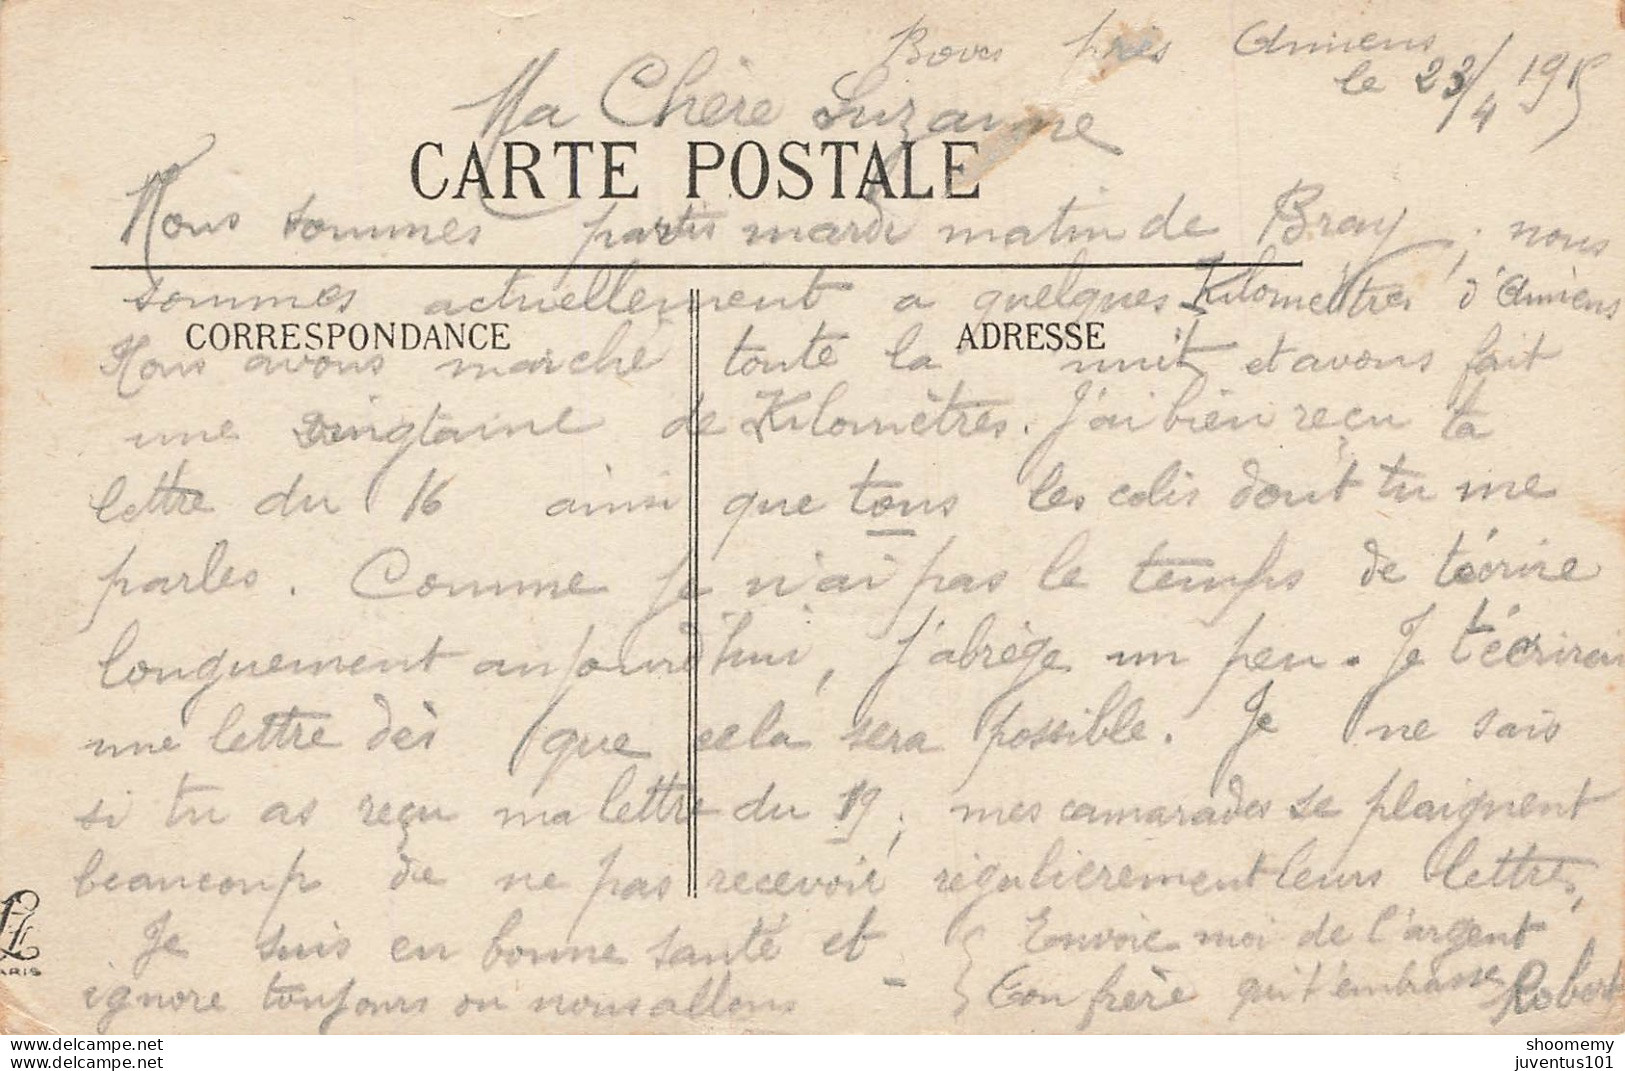 Boves près Amiens
le 23/4 1915
Ma Chère Suzanne
CARTE POSTALE
Nous sommes partis mardi matin de Bray ; nous
sommes actuellement a quelques Kilomètres d'Amiens
CORRESPONDANCE ADRESSE
Nous avons marché toute la nuit et avons fait
une vingtaine de Kilomètres. J'ai bien reçu ta
lettre du 16 ainsi que tous les colis dont tu me
parles. Comme je n'ai pas le temps de t'écrire
longuement aujourd'hui, j'abrège un peu. Je t'écrirai
une lettre dès que cela sera possible. Je ne sais
si tu as reçu ma lettre du 19 ; mes camarades se plaignent
beaucoup de ne pas recevoir régulièrement leurs lettres,
Je suis en bonne santé et
ignore toujours ou nous allons -
Envoie moi de l'argent
Ton frère qui t'embrasse Robert
PARIS
shoomemy
https://www.delcampe.net juventus101